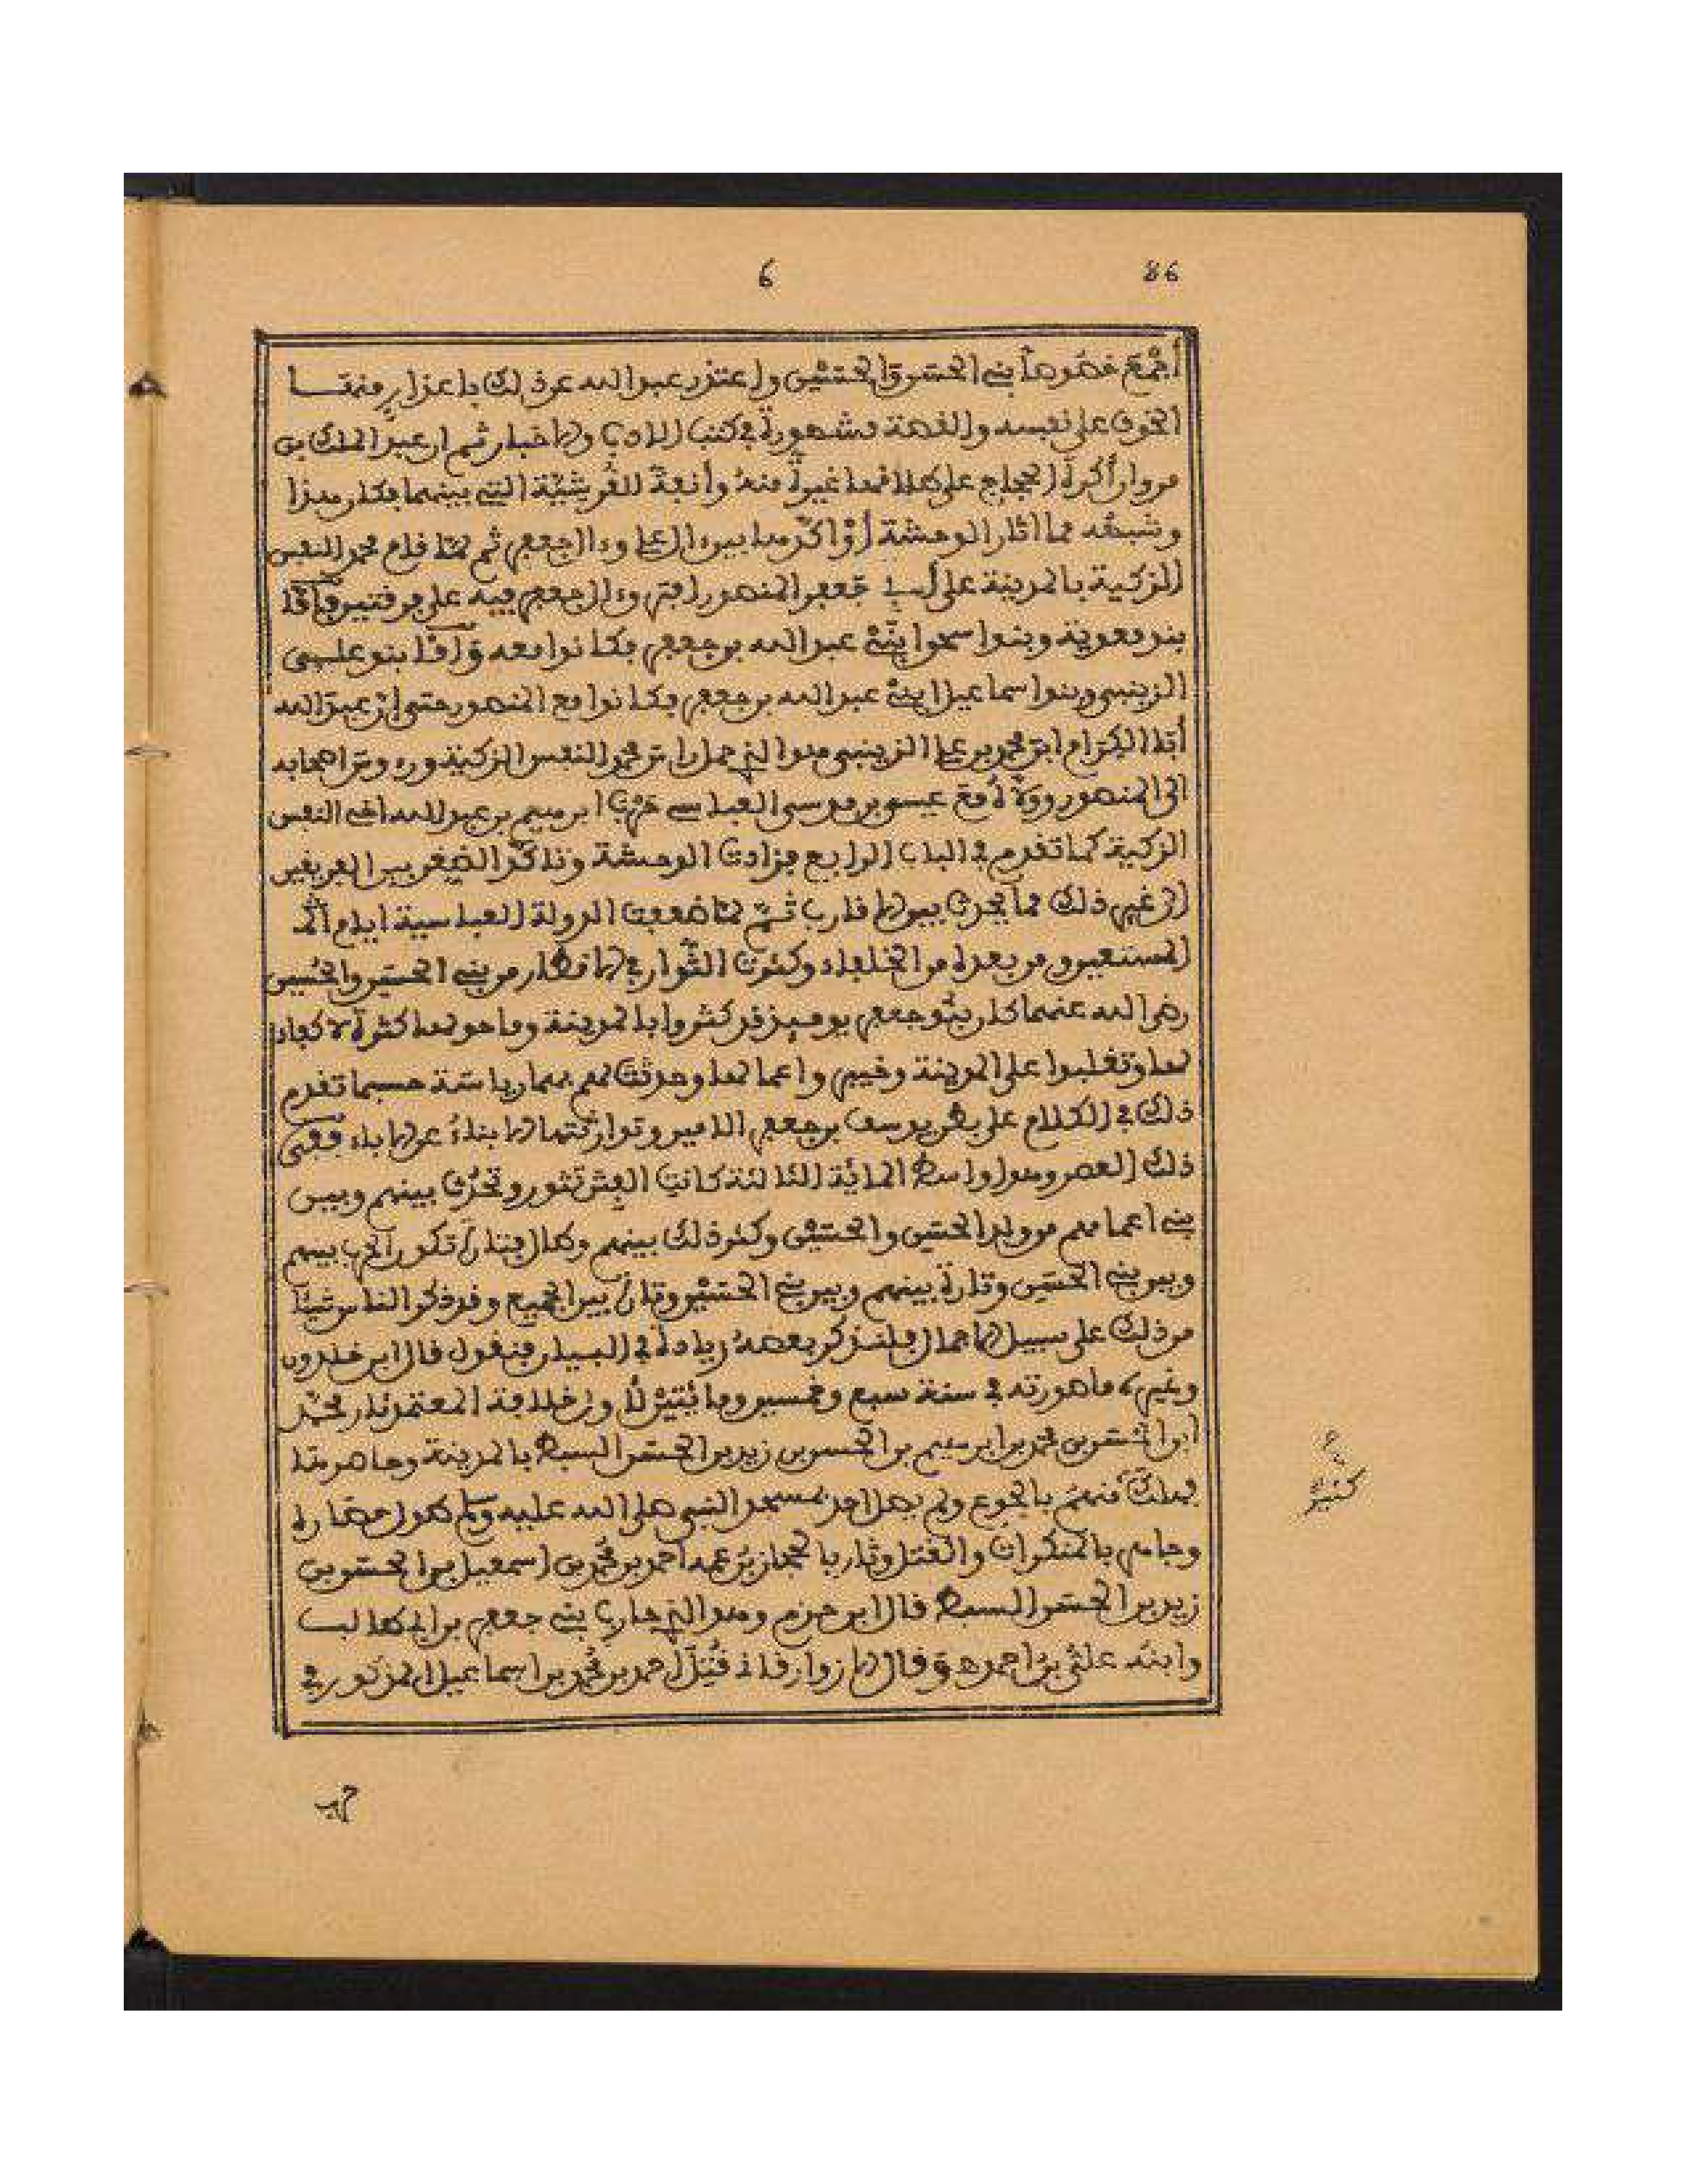 86
6
أجْمَع خصُوصاً بني الحسن والحُسَيْن واعتذر عبد الله عن ذلك باعذار منها
الخوف على نفسه والقصة مشهورة في كتب الادب والاخبار ثم ان عبد الملك بن
مروان أكره الحجاج على طلاقها غيرة منه وأنفة للقُرشيّة التي بينهما فكان هذا
وشبهه مما اثار الوحشة أوْ اكّدها بين ءال علي وءال جعفر ثم لمّا قام محمد النفس
الزكية بالمدينة على أبي جعفر المنصور افترق ءال جعفر فيه على فرقتين فأمّا
بنو معوية وبنوا سحاق ابْنَيْ عبد الله بن جعفر فكانوا معه وَأمّا بنو علي
الزينبي وبنوا سماعيل ابنَيْ عبد الله بن جعفر فكانوا مع المنصور حتى انّ عبدَ الله
أبَا الكِرَام ابنَ محمد بن علي الزينبي هو الذي حمل راس محمد النفس الزكية ورءوس اصحابه
الى المنصور وولّاهُ مع عيسى بن موسى العباسي حَرْبَ ابرهيم بن عبد الله اخي النفس
الزكية كما تقدم في الباب الرابع فزادت الوحشة وتاكّد الضِغن بين الفريقين
الى غير ذلك مما يحدث بين الاقارب ثمّ لمّا ضعفت الدولة العباسية ايام
المستعين ومن بعده من الخلفاء وكثرت الثّوار في الاقطار من بني الحسَن والحُسين
رضي الله عنهما كان بنُو جعفر يوميذ قد كثروا بالمدينة وما حولها كثرة لا كفاء
لها وتغلبوا على المدينة وخيبر واعمالها وحدثت لهم بهما رياسة حسبما تقدم
ذلك في الكلام على بطن يوسف بن جعفر الامير وتوارثتها الابناءُ عن الاباء ففي
ذلك العصر وهو اواسط المائة الثالثة كانت الفِتن تثور وتحدُث بينهم وبين
بني اعمامهم من ولد الحسَن والحسَيْن وكثر ذلك بينهم وطال فتارةً تكون الحرب بينهم
وبين بني الحسَن وتارة بينهم وبين بني الحسَيْن وتارةً بين الجميع وقد ذكر الناس شيئا
من ذلك على سبيل الاجمال فلنذكر بعضه زيادة في البيان فنقول قال ابن خلدون
وغيره ما صورته في سنة سبع وخمسين ومائتيْن أوّل خلافة المعتمد ثار محمّد
ابن الحسَن بن محمد بن ابرهيم بن الحسن بن زيد بن الحسَن السبط بالمدينة وجاهر بها
فهلك منهم بالجوع ولم يصل احد بمسجد النبي صلى الله عليه وسلم طول مقامه
كثير
وجاهر بالمنكرات والقتل وثار بالحجاز بنُ عمه احمد بن محمد بن اسمعيل بن الحسَن بن
زيد بن الحسَن السبط قال ابن حزم وهو الذي حارب بني جعفر بن ابي طالب
وابنه عليّ بنُ احمد ه وقال الازوارقاني قُتل احمد بن محمد بن اسماعيل المذكور في
حرب